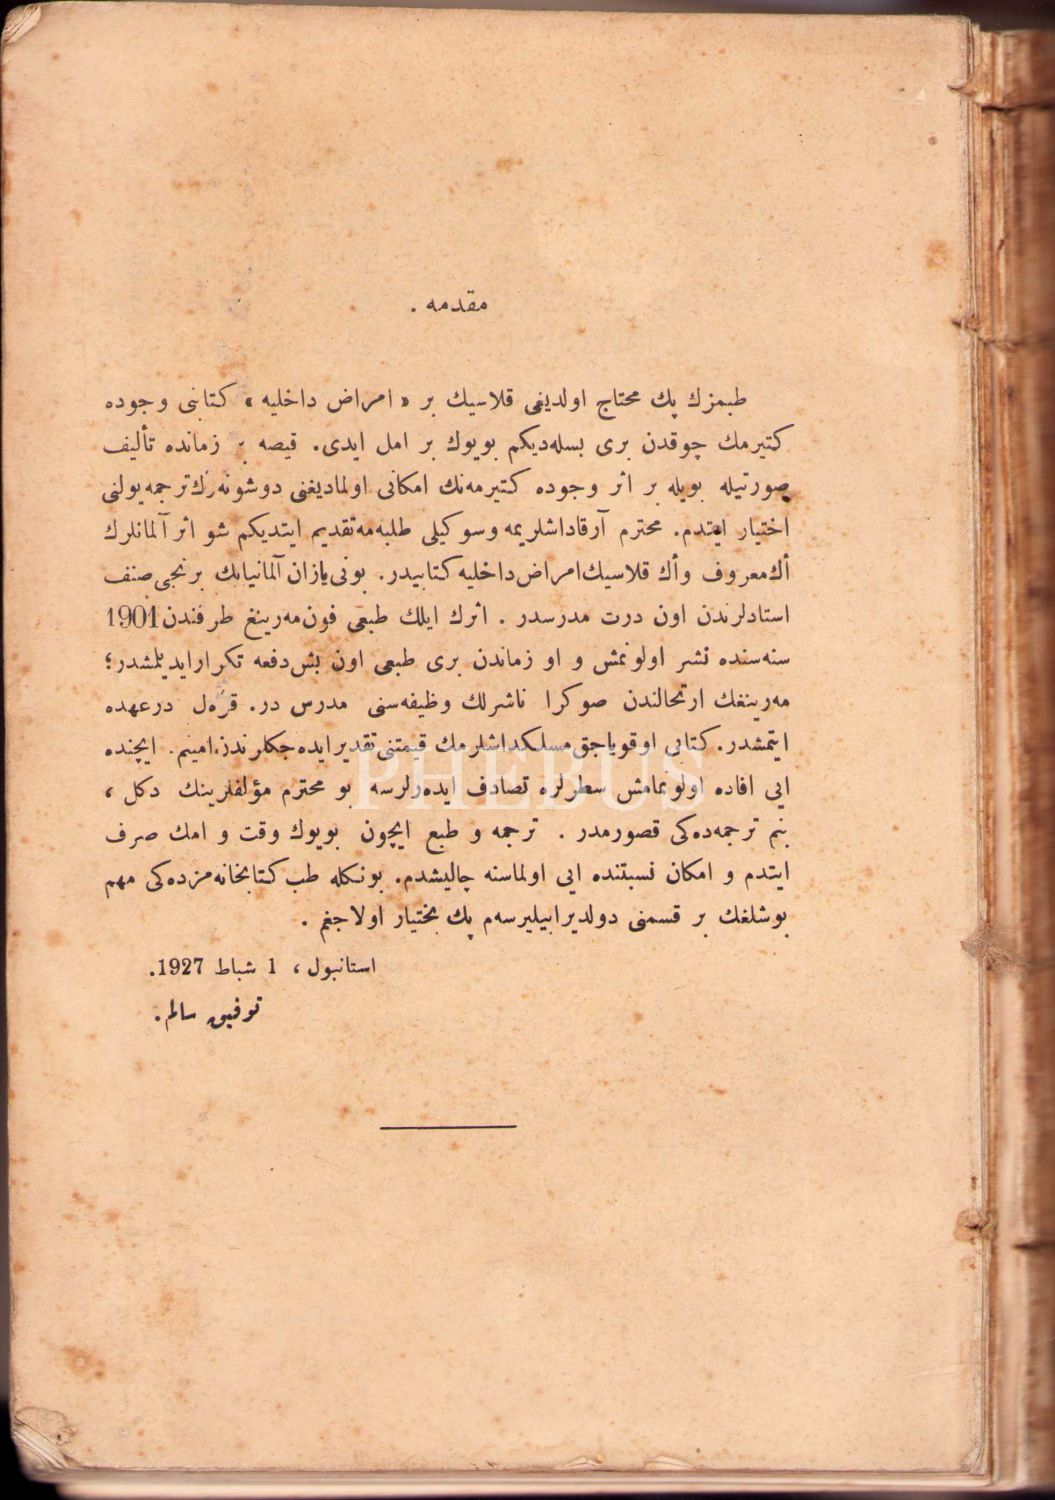 مقدمه .
طبمزك پك محتاج اولديغی قلاسيك بر « امراض داخليه » كتابنی وجوده
كتيرمك چوقدن بری بسله‌ديكم بويوك بر امل ايدی. قيصه بر زمانده تأليف
صورتيله بويله بر اثر وجوده كتيرمه‌نك امكانی اولماديغنی دوشونه‌رك ترجمه يولنی
اختيار ايتدم. محترم آرقاداشلريمه وسوكيلی طلبه‌مه تقديم ايتديكم شو اثر آلمانلرك
أك معروف وأك قلاسيك امراض داخليه كتابيدر. بونی يازان آلمانيانك برنجی صنف
استادلرندن اون درت مدرسدر . اثرك ايلك طبعی فون مه‌رينغ طرفندن 1901
سنه‌سنده نشر اولونمش و او زماندن بری طبعی اون بش دفعه تكرار ايديلمشدر؛
مه‌رينغك ارتحالندن صوكرا ناشرلك وظيفه‌سنی مدرس در. قره‌ل درعهده
ايتمشدر. كتابی اوقوياجق مسلكداشلرمك قيمتنی تقدير ايده‌جكلرندن امينم. ايچنده
ايی افاده اولونمامش سطرلره تصادف ايده‌رلرسه بو محترم مؤلفلرينك دكل ،
بنم ترجمه‌ده‌كی قصورمدر . ترجمه و طبع ايچون بويوك وقت و امك صرف
ايتدم و امكان نسبتنده ايی اولماسنه چاليشدم. بونكله طب كتابخانه‌مزده‌كی مهم
بوشلغك بر قسمنی دولديرابيليرسه‌م پك بختيار اولاجغم .
استانبول ، 1 شباط 1927.
توفيق سالم.
PHEBUS